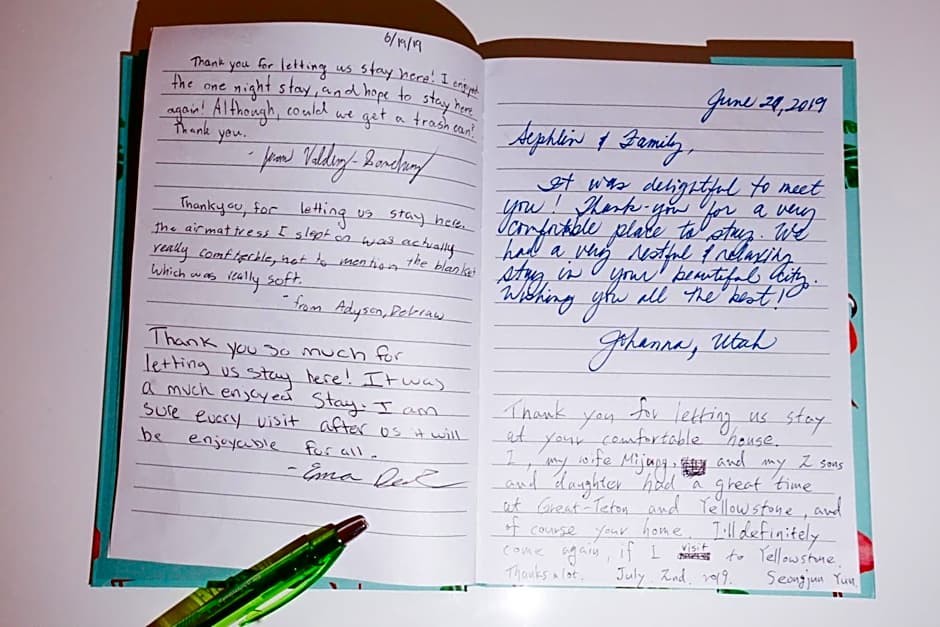 6/19/19
Thank you for letting us stay here! I enjoyed
the one night stay, and hope to stay here
again! Although, could we get a trash can?
Thank you.
Thankyou, for letting us stay here.
the airmattress I slept on was actually
really comfterble, not to mention the blanket
which was really soft.
- from Adyson,
Thank you so much for
letting us stay here! It was
a much enjoyed stay. I am
sure every visit after us it will
be enjoyable for all.
- Ema
June 29, 2019
& Family,
It was delightful to meet
you! Thank-you for a very
comfortable place to stay. We
had a very restful & relaxing
stay in your beautiful city.
Wishing you all the best!
Johanna, Utah
Thank you for letting us stay
at your comfortable house.
I, my wife Mijung, and my 2 sons
and daughter had a great time
at Great-Teton and Yellowstone, and
of course your home. I'll definitely
come again, if I visit to Yellowstone.
Thanks a lot. July 2nd. 2019. Seongjun Yun.